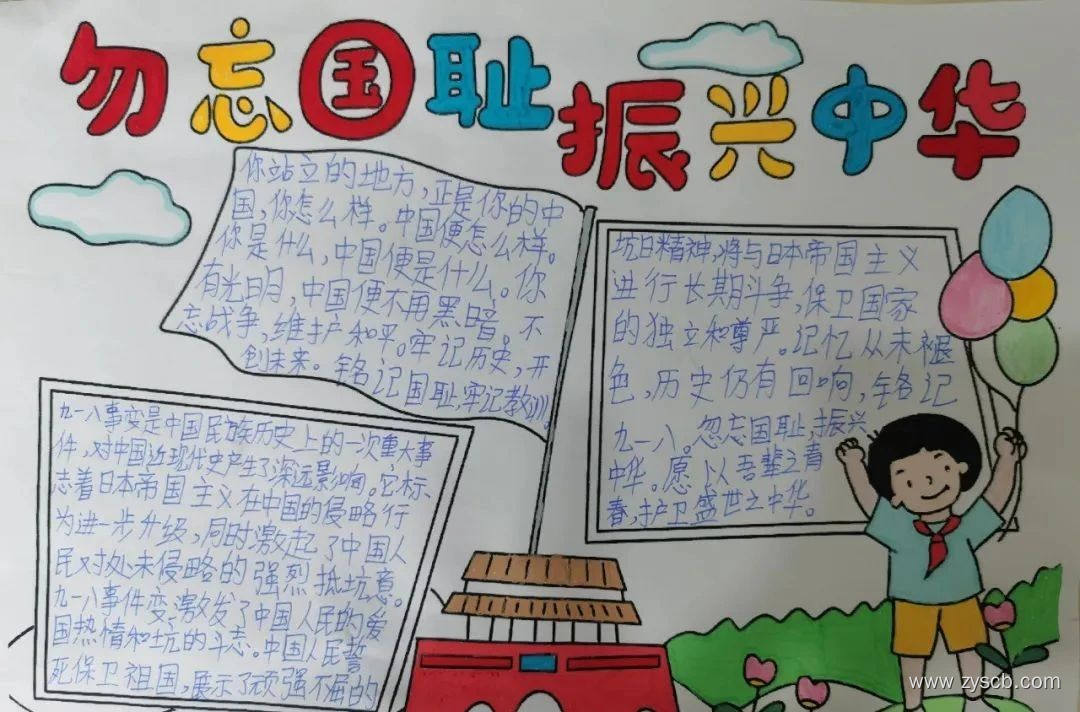 勿忘国耻振兴中华
你站立的地方,正是你的中
国,你怎么样。中国便怎么样。
你是什么,中国便是什么。你
有光明,中国便不用黑暗。不
忘战争,维护和平。牢记历史,开
创未来。铭记国耻,牢记教训。
坑日精神,将与日本帝国主义
进行长期斗争,保卫国家
的独立和尊严。记忆从未褪
色,历史仍有回响,铭记
九一八。忽忘国耻,振兴
中华。愿以吾辈之青
春,护卫盛世之中华。
九一八事变是中国民族历史上的一次重大事
件,对中国近现代史产生了深远影响。它标
志着日本帝国主义在中国的侵略行
为进一步升级,同时激起了中国人
民对处未侵略的强烈抵坑意。
九一八事件变激发了中国人民的爱
国热情和坑的斗志。中国人民誓
死保卫祖国,展示了顽强不屈的
www.zyscb.com